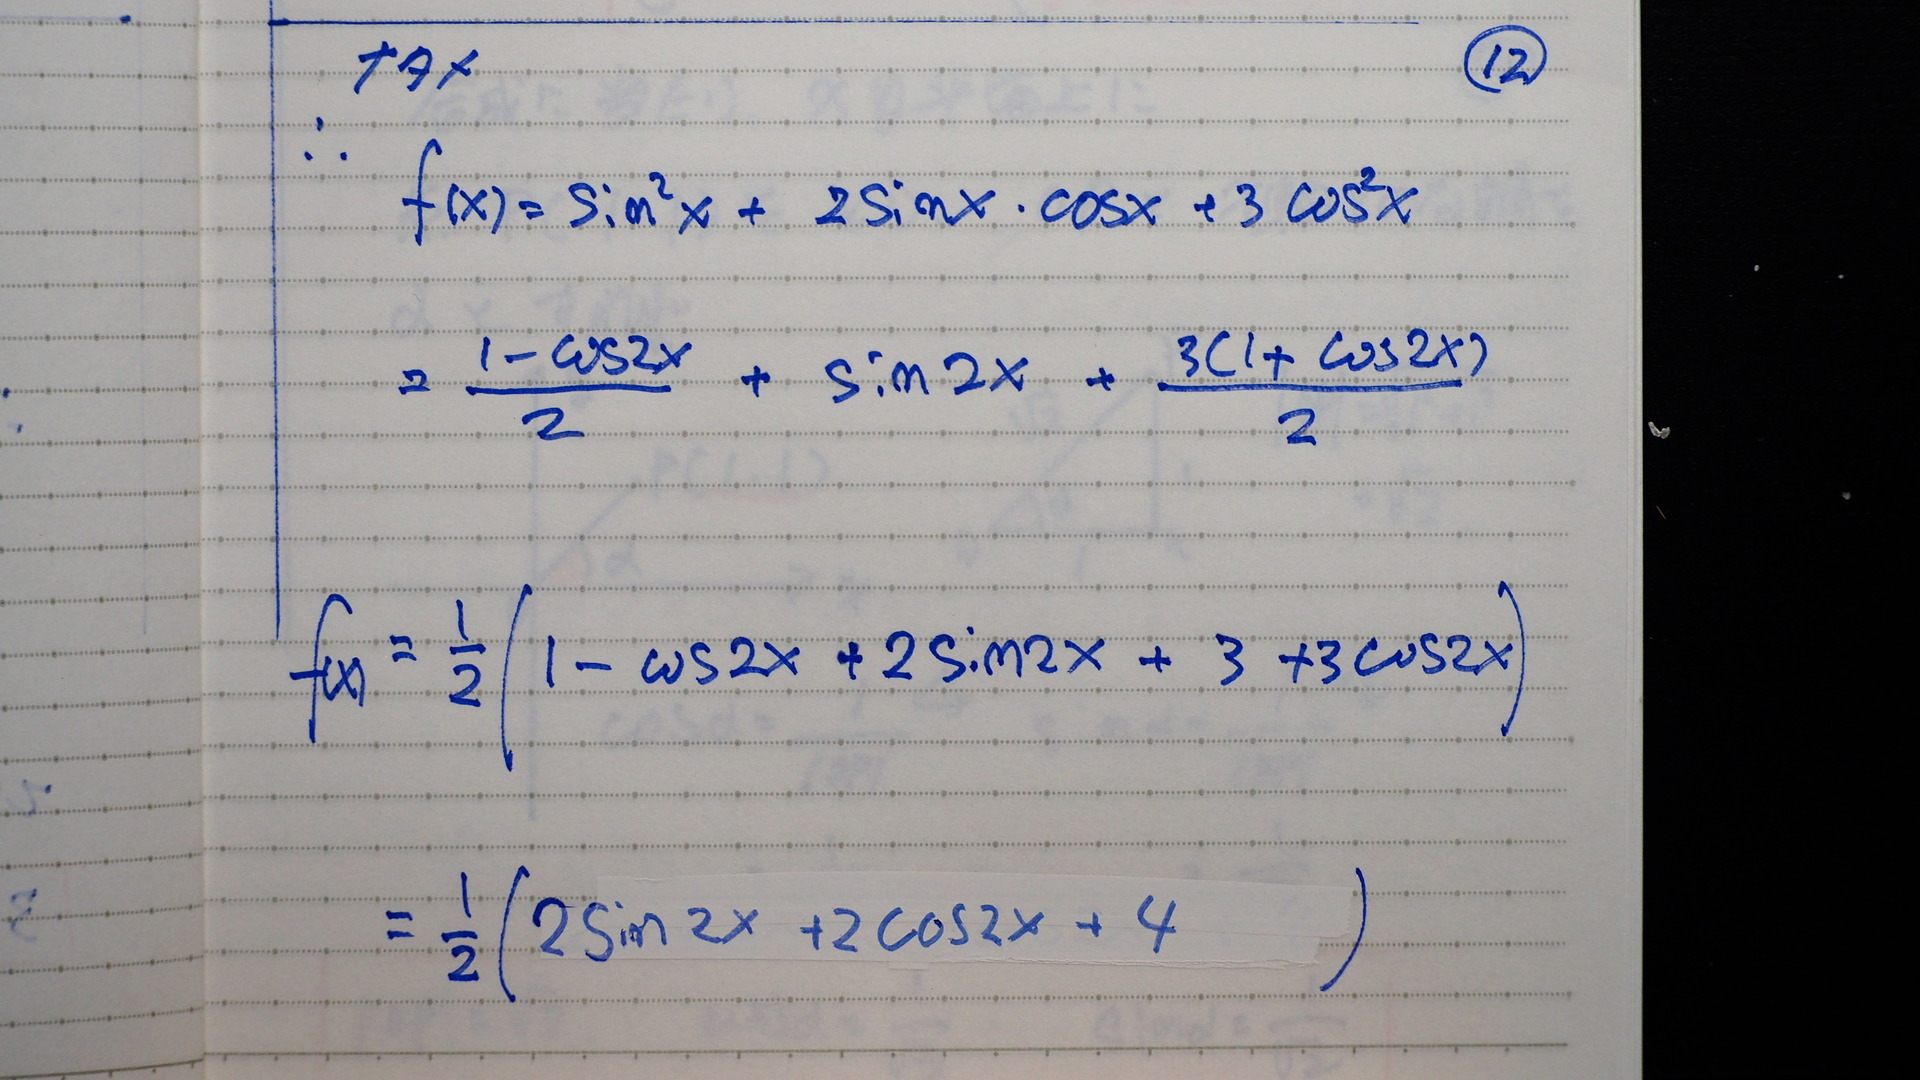 + A x ⑫
∴ f(x) = sin²x + 2sinx · cosx + 3 cos²x
= (1 - cos2x)/2 + sin2x + 3(1 + cos2x)/2
f(x) = 1/2 (1 - cos2x + 2sin2x + 3 + 3cos2x)
= 1/2 (2sin2x + 2cos2x + 4)